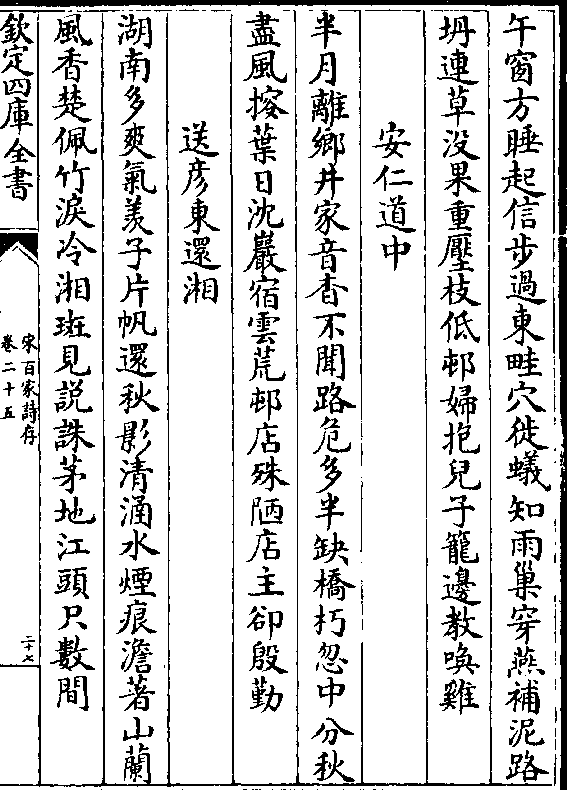 午窗方睡起信步過東畦穴徙蟻知雨巢穿燕補泥路
坍連草没果重壓枝低邨婦抱兒子籠邊教喚雞
安仁道中
半月離鄉井家音杳不聞路危多半缺橋朽忽中分秋
盡風搲葉日沈巖宿雲荒邨店殊陋店主卻殷勤
送彦東還湘
湖南多爽氣羡子片帆還秋影清涵水煙痕澹著山蘭
風香楚佩竹淚冷湘斑見説誅茅地江頭只數間
欽定四庫全書
宋百家詩存
卷二十五
二十七